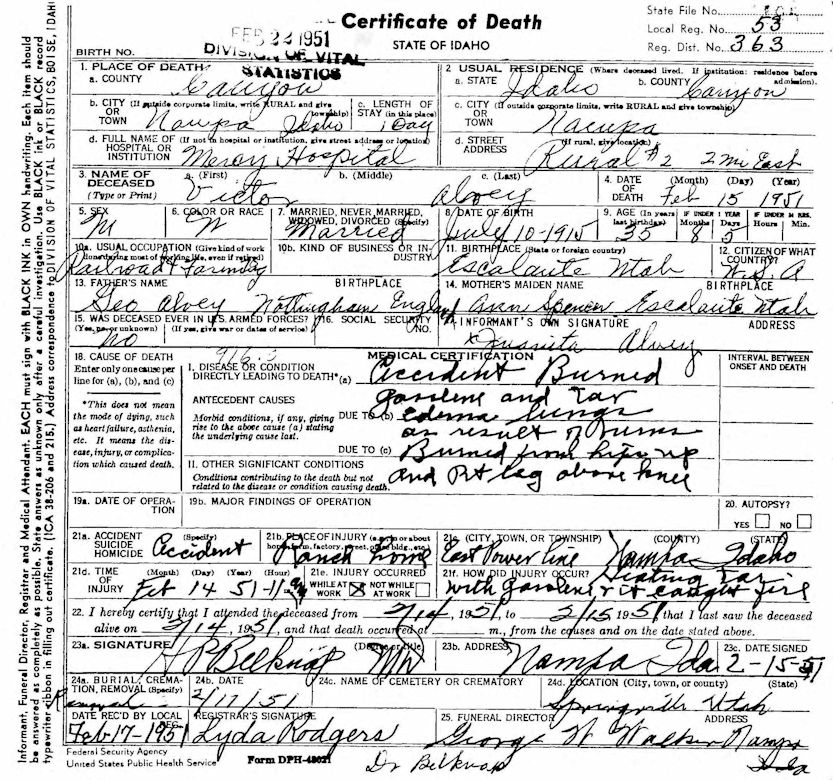 Certificate of Death
STATE OF IDAHO
State File No.
Local Reg. No. 53
Reg. Dist. No. 363
FEB 22 1951
DIVISION OF VITAL
STATISTICS
BIRTH NO.
1. PLACE OF DEATH
a. COUNTY Canyon
2. USUAL RESIDENCE (Where deceased lived. If institution: residence before admission).
a. STATE Idaho b. COUNTY Canyon
b. CITY OR TOWN (If outside corporate limits, write RURAL and give township) Nampa Idaho
c. LENGTH OF STAY (in this place) 1 Day
c. CITY OR TOWN (If outside corporate limits, write RURAL and give township) Nampa
d. FULL NAME OF HOSPITAL OR INSTITUTION (If not in hospital or institution, give street address or location) Mercy Hospital
d. STREET ADDRESS (If rural, give location) Rural #2 2 mi East
3. NAME OF DECEASED (Type or Print) a. (First) Victor b. (Middle) c. (Last) Alvey
4. DATE OF DEATH (Month) (Day) (Year) Feb 15 1951
5. SEX M
6. COLOR OR RACE W
7. MARRIED, NEVER MARRIED, WIDOWED, DIVORCED (Specify) Married
8. DATE OF BIRTH July 10-1915
9. AGE (In years last birthday) 35 IF UNDER 1 YEAR Months 8 Days 5 IF UNDER 24 HRS. Hours Min.
10a. USUAL OCCUPATION (Give kind of work done during most of working life, even if retired) Railroad & Farming
10b. KIND OF BUSINESS OR INDUSTRY
11. BIRTHPLACE (State or foreign country) Escalante Utah
12. CITIZEN OF WHAT COUNTRY? U.S.A
13. FATHER'S NAME BIRTHPLACE Geo Alvey Nottingham England
14. MOTHER'S MAIDEN NAME BIRTHPLACE Ann Spencer Escalante Utah
15. WAS DECEASED EVER IN U.S. ARMED FORCES? (Yes, no or unknown) (If yes, give war or dates of service) No
16. SOCIAL SECURITY NO.
17. INFORMANT'S OWN SIGNATURE ADDRESS
x Alvey
18. CAUSE OF DEATH
Enter only one cause per line for (a), (b), and (c)
*This does not mean the mode of dying, such as heart failure, asthenia, etc. It means the disease, injury, or complication which caused death.
916.3
MEDICAL CERTIFICATION
INTERVAL BETWEEN ONSET AND DEATH
I. DISEASE OR CONDITION DIRECTLY LEADING TO DEATH* (a) Accident Burned
gasolene and tar
ANTECEDENT CAUSES
Morbid conditions, if any, giving rise to the above cause (a) stating the underlying cause last.
DUE TO (b) edema lungs
as result of burns
DUE TO (c) Burned from hips up
and Rt leg above knee
II. OTHER SIGNIFICANT CONDITIONS
Conditions contributing to the death but not related to the disease or condition causing death.
19a. DATE OF OPERATION
19b. MAJOR FINDINGS OF OPERATION
20. AUTOPSY?
YES NO
21a. ACCIDENT SUICIDE HOMICIDE (Specify) Accident
21b. PLACE OF INJURY (e.g., in or about home, farm, factory, street, office bldg., etc.) Ranch home
21c. (CITY, TOWN, OR TOWNSHIP) (COUNTY) (STATE)
East Power line Nampa Idaho
21d. TIME OF INJURY (Month) (Day) (Year) (Hour) Feb 14 51-11
21e. INJURY OCCURRED WHILE AT WORK X NOT WHILE AT WORK
21f. HOW DID INJURY OCCUR? Heating tar
with gasolene & it caught fire
22. I hereby certify that I attended the deceased from 2/14, 1951, to 2/15, 1951, that I last saw the deceased
alive on 2/14, 1951, and that death occurred at m., from the causes and on the date stated above.
23a. SIGNATURE (Degree or title) Belknap MD
23b. ADDRESS Nampa Ida
23c. DATE SIGNED 2-15-51
24a. BURIAL, CREMATION, REMOVAL (Specify) Removal
24b. DATE 2/17/51
24c. NAME OF CEMETERY OR CREMATORY
24d. LOCATION (City, town, or county) (State)
Springville Utah
DATE REC'D BY LOCAL REG. Feb 17-1951
REGISTRAR'S SIGNATURE Lyda Rodgers
25. FUNERAL DIRECTOR ADDRESS
George W Walker Nampa
Ida
Federal Security Agency
United States Public Health Service
Form DPH-48021
Dr Belknap
Informant, Funeral Director, Registrar and Medical Attendant. EACH must sign with BLACK INK in OWN handwriting. Each item should
be answered as completely as possible. State answers as unknown only after a careful investigation. Use BLACK ink or BLACK record
typewriter ribbon in filling out certificate. (ICA 38-206 and 215.) Address correspondence to DIVISION OF VITAL STATISTICS, BOISE, IDAHO